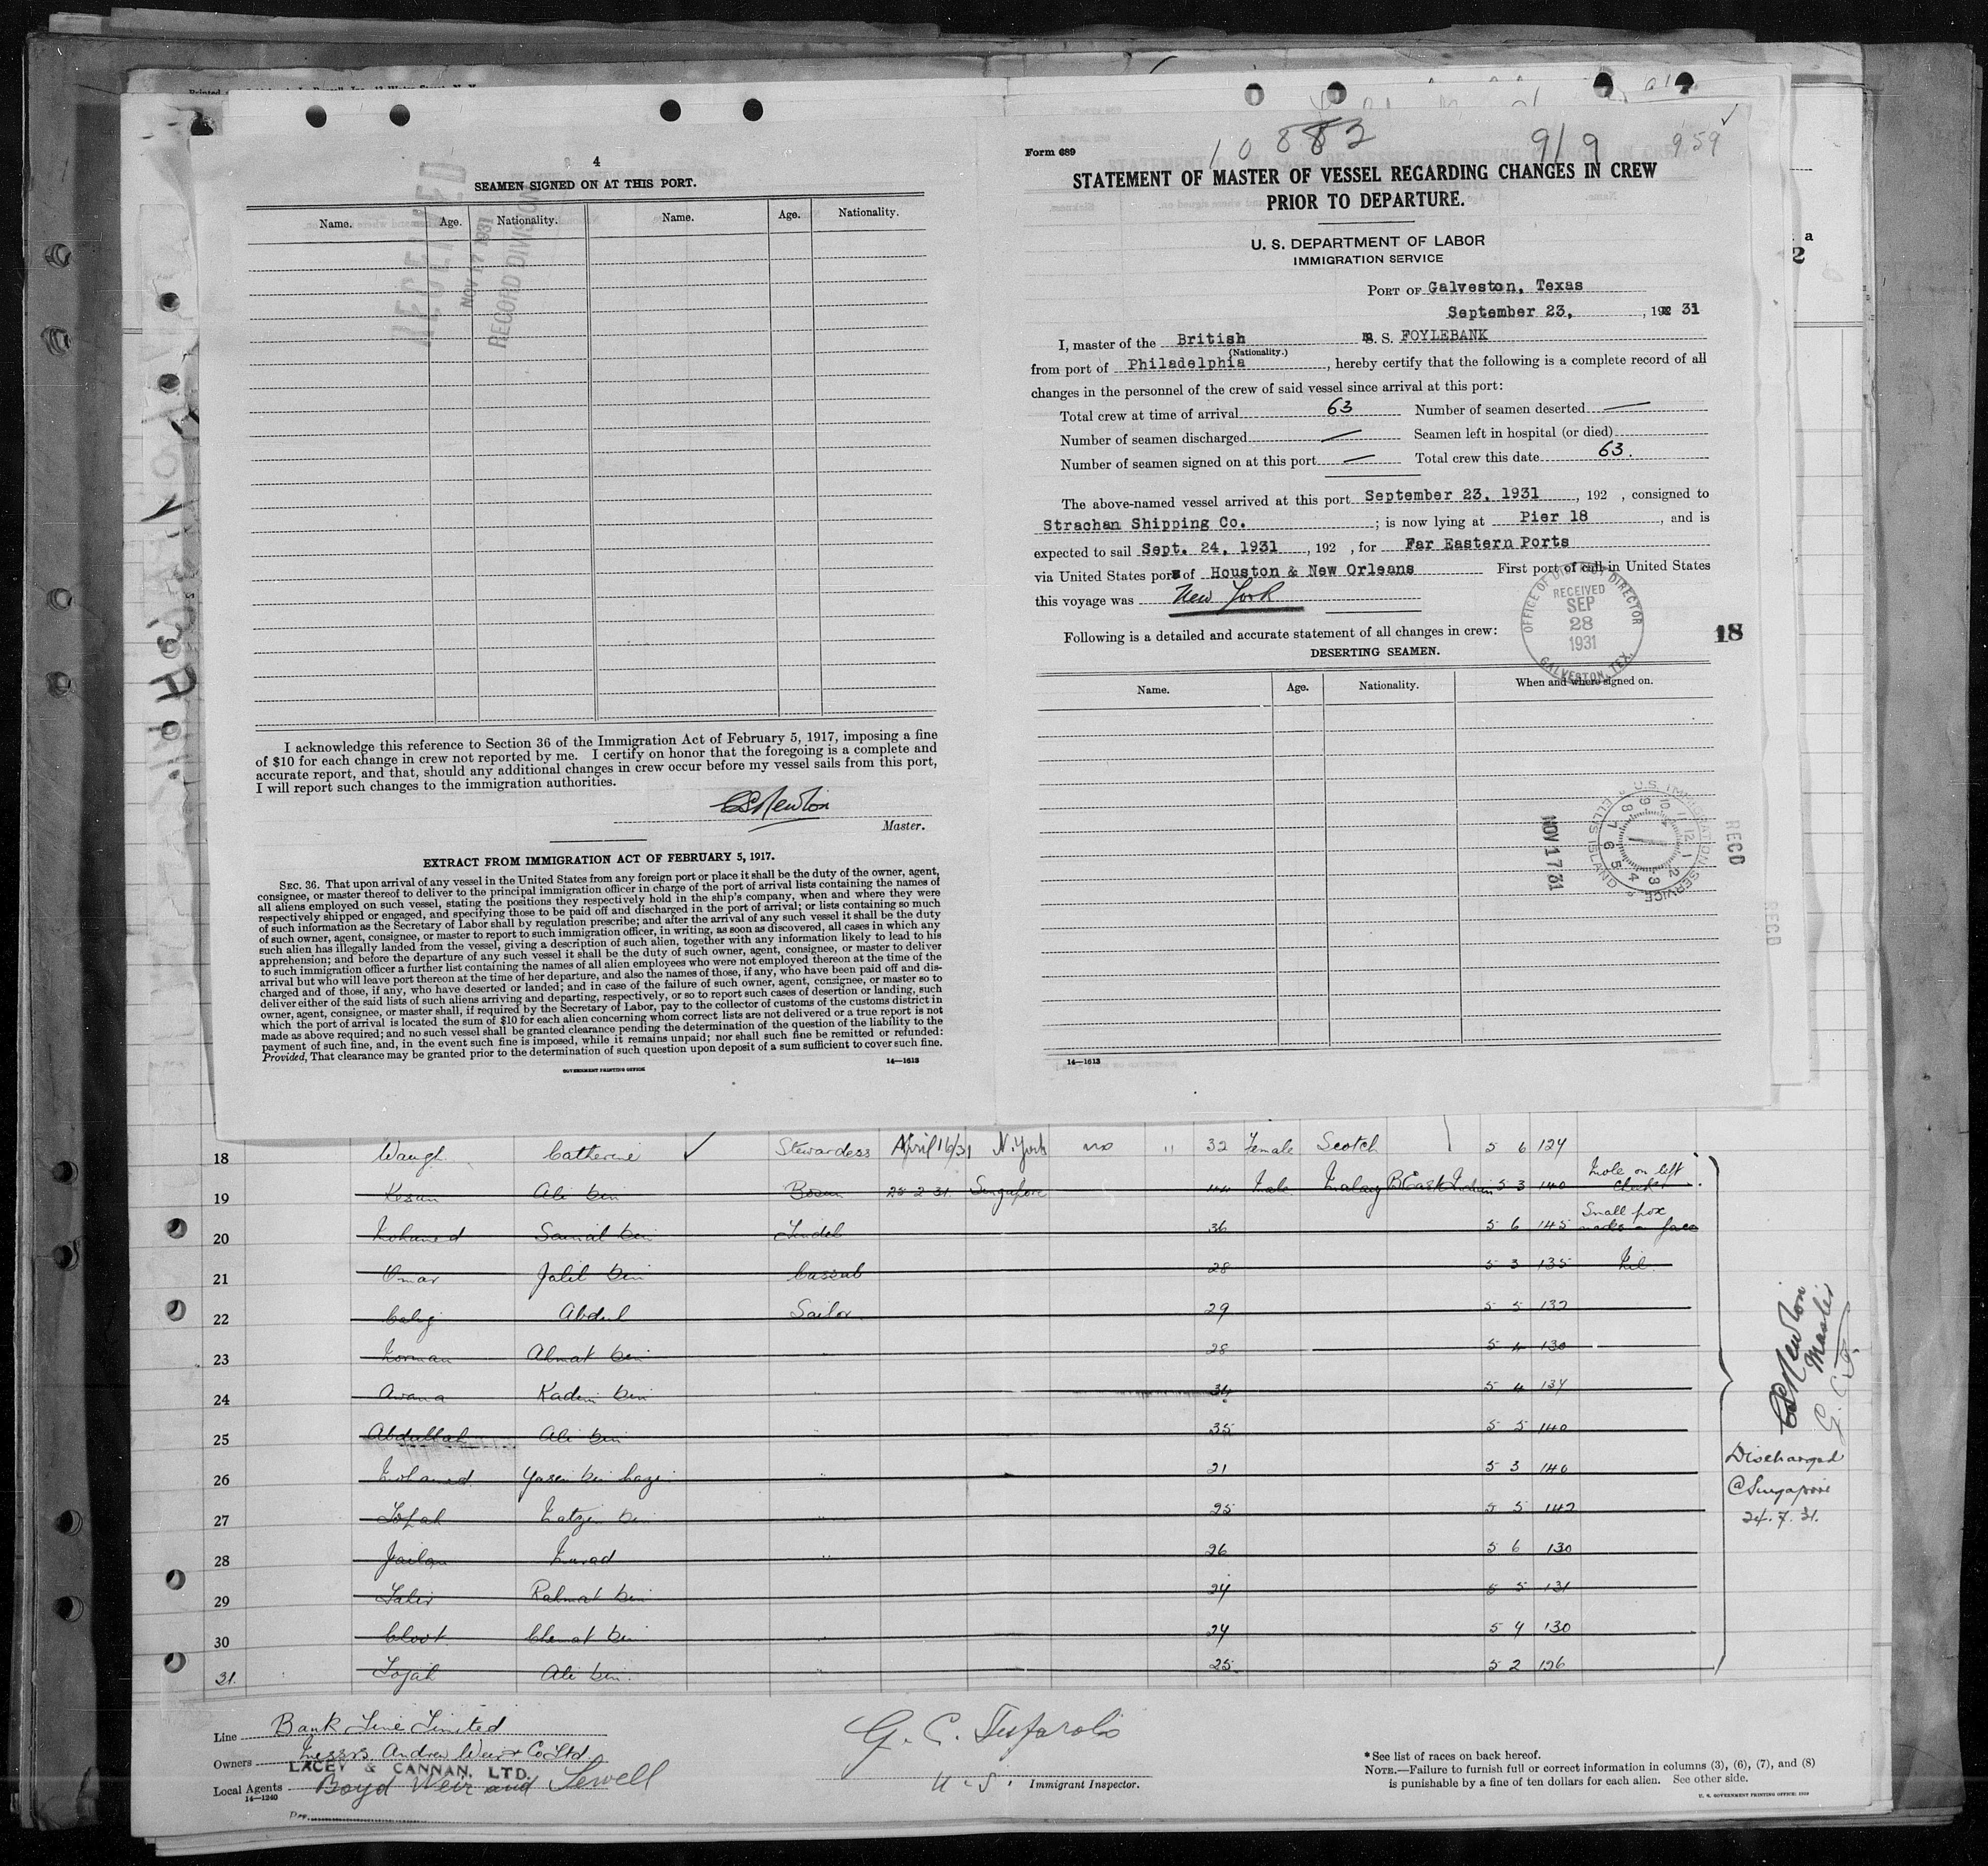 4
SEAMEN SIGNED ON AT THIS PORT.
Name. Age. Nationality. Name. Age. Nationality.
RECEIVED
NOV 17 1931
RECORD DIVISION
I acknowledge this reference to Section 36 of the Immigration Act of February 5, 1917, imposing a fine
of $10 for each change in crew not reported by me. I certify on honor that the foregoing is a complete and
accurate report, and that, should any additional changes in crew occur before my vessel sails from this port,
I will report such changes to the immigration authorities.
Newton
Master.
EXTRACT FROM IMMIGRATION ACT OF FEBRUARY 5, 1917.
SEC. 36. That upon arrival of any vessel in the United States from any foreign port or place it shall be the duty of the owner, agent,
consignee, or master thereof to deliver to the principal immigration officer in charge of the port of arrival lists containing the names of
all aliens employed on such vessel, stating the positions they respectively hold in the ship's company, when and where they were
respectively shipped or engaged, and specifying those to be paid off and discharged in the port of arrival; or lists containing so much
of such information as the Secretary of Labor shall by regulation prescribe; and after the arrival of any such vessel it shall be the duty
of such owner, agent, consignee, or master to report to such immigration officer, in writing, as soon as discovered, all cases in which any
such alien has illegally landed from the vessel, giving a description of such alien, together with any information likely to lead to his
apprehension; and before the departure of any such vessel it shall be the duty of such owner, agent, consignee, or master to deliver
to such immigration officer a further list containing the names of all alien employees who were not employed thereon at the time of the
arrival but who will leave port thereon at the time of her departure, and also the names of those, if any, who have been paid off and dis-
charged and of those, if any, who have deserted or landed; and in case of the failure of such owner, agent, consignee, or master so to
deliver either of the said lists of such aliens arriving and departing, respectively, or so to report such cases of desertion or landing, such
owner, agent, consignee, or master shall, if required by the Secretary of Labor, pay to the collector of customs of the customs district in
which the port of arrival is located the sum of $10 for each alien concerning whom correct lists are not delivered or a true report is not
made as above required; and no such vessel shall be granted clearance pending the determination of the question of the liability to the
payment of such fine, and, in the event such fine is imposed, while it remains unpaid; nor shall such fine be remitted or refunded:
Provided, That clearance may be granted prior to the determination of such question upon deposit of a sum sufficient to cover such fine.
GOVERNMENT PRINTING OFFICE
14—1613
10882 919 959
Form 689
STATEMENT OF MASTER OF VESSEL REGARDING CHANGES IN CREW
PRIOR TO DEPARTURE.
U. S. DEPARTMENT OF LABOR
IMMIGRATION SERVICE
PORT OF Galveston, Texas
September 23, , 192 31
I, master of the British S. FOYLEBANK
(Nationality.)
from port of Philadelphia, hereby certify that the following is a complete record of all
changes in the personnel of the crew of said vessel since arrival at this port:
Total crew at time of arrival 63 Number of seamen deserted —
Number of seamen discharged — Seamen left in hospital (or died)
Number of seamen signed on at this port — Total crew this date 63.
The above-named vessel arrived at this port September 23, 1931, 192 , consigned to
Strachan Shipping Co. ; is now lying at Pier 18, and is
expected to sail Sept. 24, 1931, 192 , for Far Eastern Ports
via United States ports of Houston & New Orleans First port of call in United States
this voyage was New York
OFFICE OF DISTRICT DIRECTOR
RECEIVED
SEP
28
1931
GALVESTON, TEX.
18
Following is a detailed and accurate statement of all changes in crew:
DESERTING SEAMEN.
Name. Age. Nationality. When and where signed on.
NOV 17 31
U.S. IMMIGRATION SERVICE ELLIS ISLAND
RECD
RECD
14—1613
18 Waugh Catherine ✓ Stewardess April 16/31 N. York no " 32 Female Scotch 5 6 124
19 Kosun Ali bin Bosun 25 2 31 Singapore 44 Male Malay B East Indian 5 3 140 Mole on left cheek
20 Mohamed Samat bin Tindel 36 5 6 145 Small pox marks on face
21 Omar Jalil bin Cassab 28 5 3 135 Nil.
22 Abdul Sailor 29 5 5 132
23 Norman Ahmat bin " 28 5 4 130
24 Awana Kadim bin " 34 5 4 134
25 Abdullah Ali bin " 35 5 5 140
26 Mohamed Yasin bin " 21 5 3 140
27 bin " 25 5 5 142
28 Jailan Murad " 26 5 6 130
29 Rahmat bin " 24 5 5 131
30 Chemat bin " 24 5 4 130
31. Ali bin. " 25 5 2 126
Newton
Master
Discharged
@ Singapore
24. 7. 31.
Line Bank Line Limited
Owners Messrs. Andrew Weir & Co Ltd.
LACEY & CANNAN, LTD.
Local Agents Boyd Weir and Sewell
14—1240
U.S. Immigrant Inspector.
*See list of races on back hereof.
NOTE.—Failure to furnish full or correct information in columns (3), (6), (7), and (8)
is punishable by a fine of ten dollars for each alien. See other side.
U. S. GOVERNMENT PRINTING OFFICE: 1929